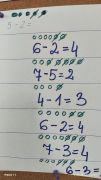 5-2=
6-2=4
7-5=2
4-1=3
6-2=4
7-3=4
6-3=